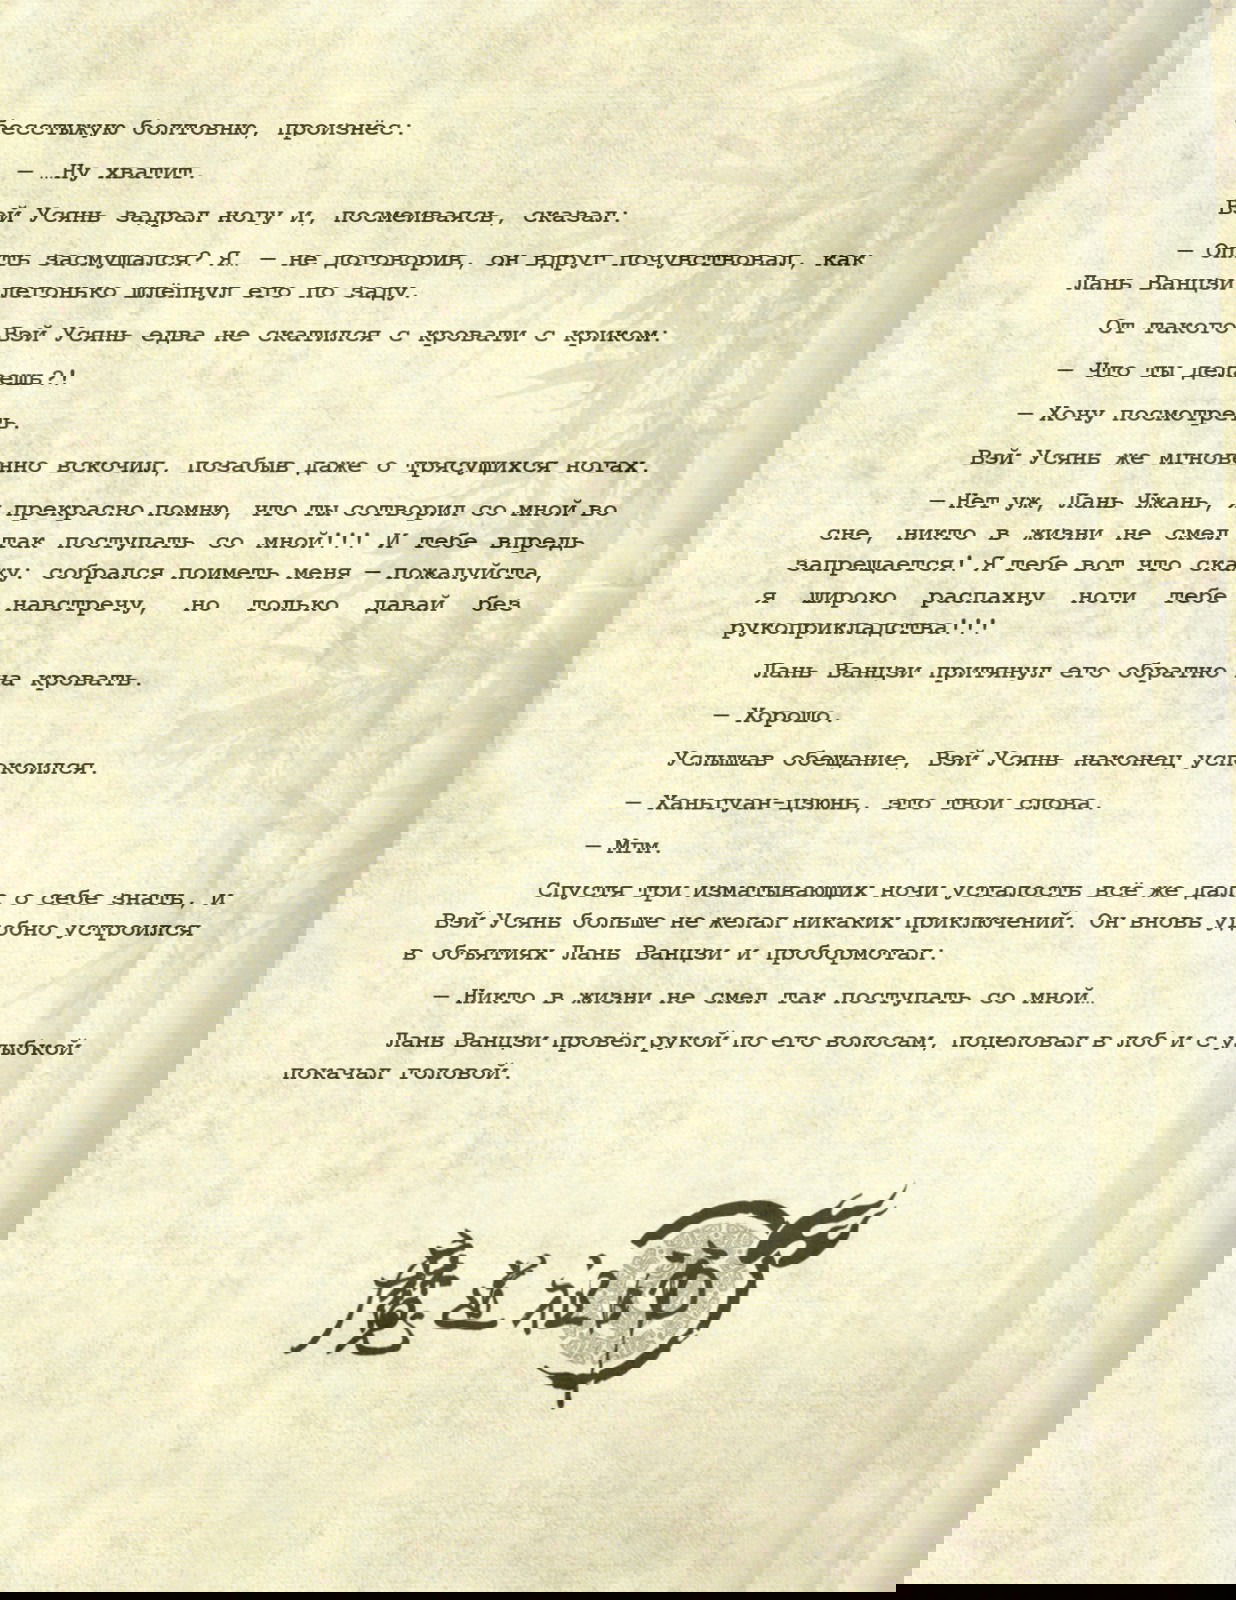 бесстыжую болтовню, произнёс:
— …Ну хватит.
Вэй Усянь задрал ногу и, посмеиваясь, сказал:
— Опять засмущался? Я… — не договорив, он вдруг почувствовал, как
Лань Ванцзи легонько шлёпнул его по заду.
От такого Вэй Усянь едва не скатился с кровати с криком:
— Что ты делаешь?!
— Хочу посмотреть.
Вэй Усянь же мгновенно вскочил, позабыв даже о трясущихся ногах.
— Нет уж, Лань Чжань, я прекрасно помню, что ты сотворил со мной во
сне, никто в жизни не смел так поступать со мной!!! И тебе впредь
запрещается! Я тебе вот что скажу: собрался поиметь меня — пожалуйста,
я широко распахну ноги тебе навстречу, но только давай без
рукоприкладства!!!
Лань Ванцзи притянул его обратно на кровать.
— Хорошо.
Услышав обещание, Вэй Усянь наконец успокоился.
— Ханьгуан-цзюнь, это твои слова.
— Мгм.
Спустя три изматывающих ночи усталость всё же дала о себе знать, и
Вэй Усянь больше не желал никаких приключений. Он вновь удобно устроился
в объятиях Лань Ванцзи и пробормотал:
— Никто в жизни не смел так поступать со мной…
Лань Ванцзи провёл рукой по его волосам, поцеловал в лоб и с улыбкой
покачал головой.
魔道祖师